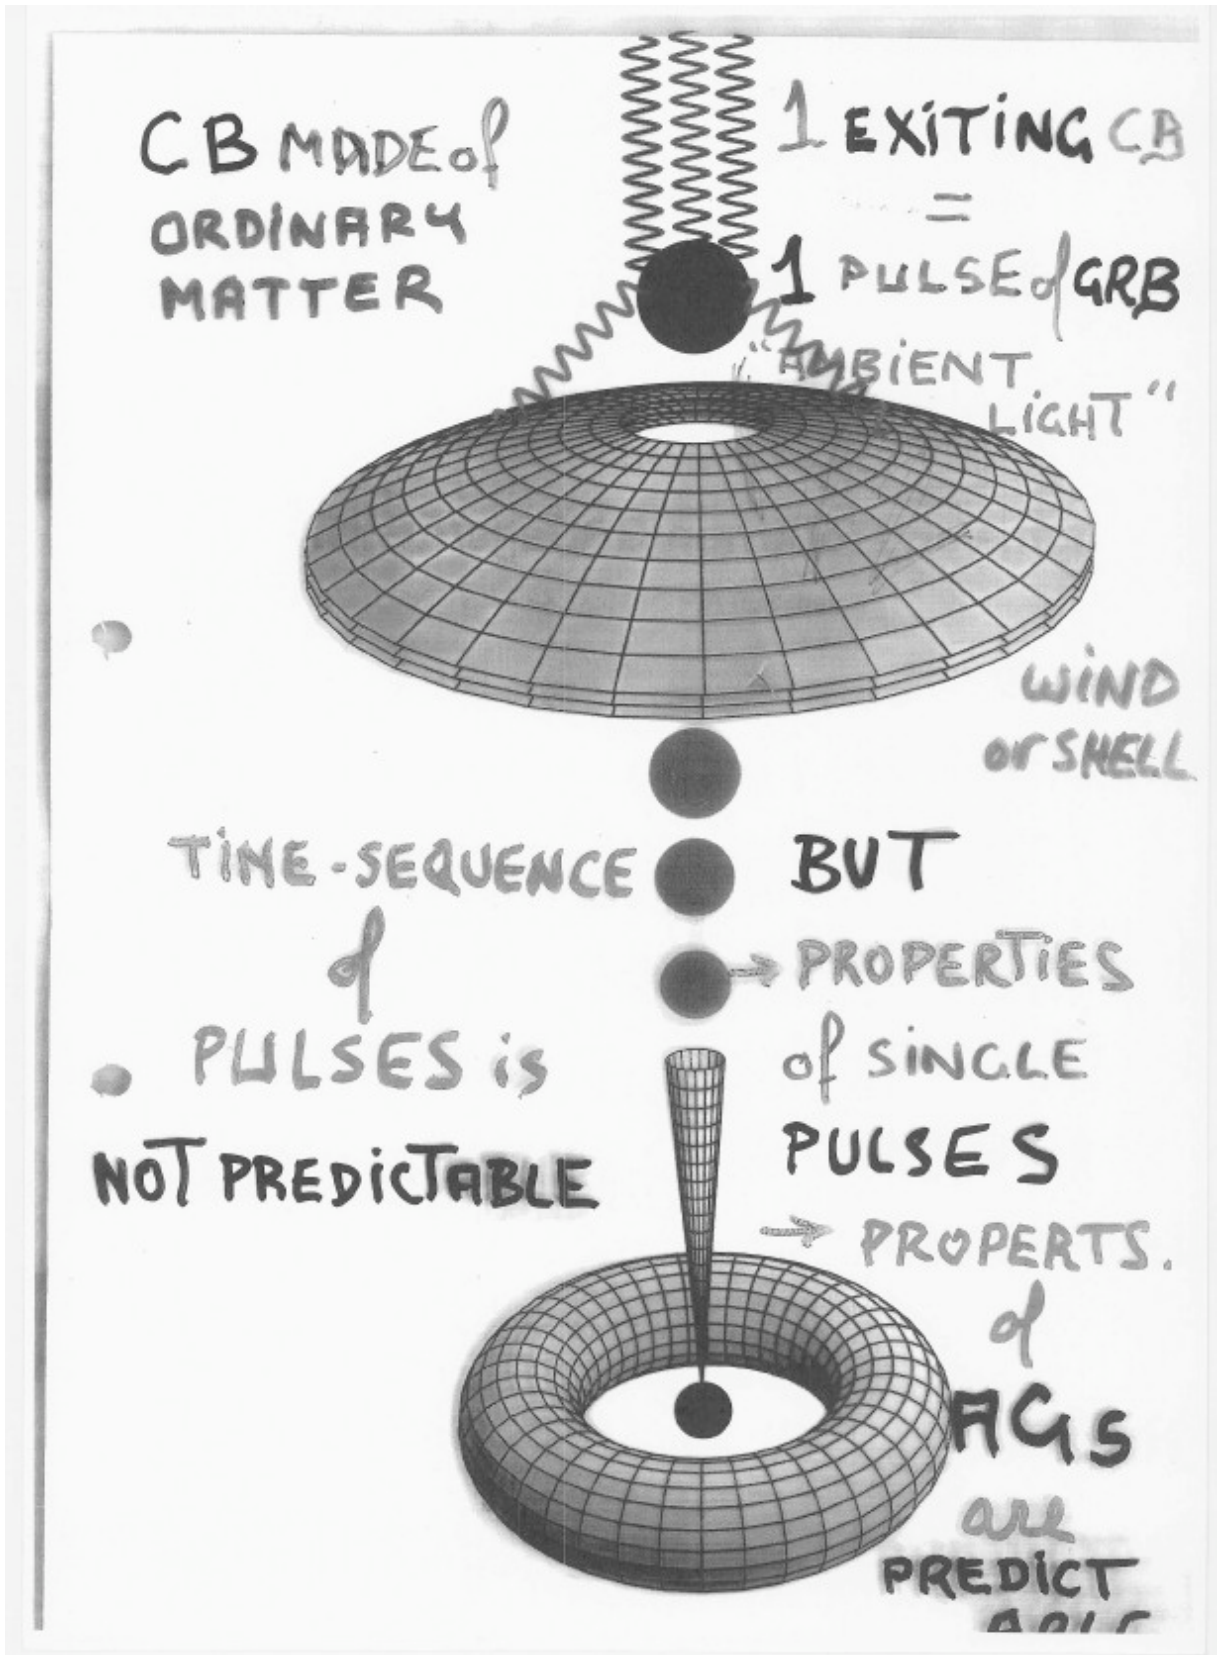 CB MADE of
ORDINARY
MATTER
1 EXITING CB
=
1 PULSE of GRB
"AMBIENT
LIGHT"
WIND
or SHELL
TIME-SEQUENCE
of
PULSES is
NOT PREDICTABLE
BUT
→ PROPERTIES
of SINGLE
PULSES
→ PROPERTS.
of
AGs
are
PREDICT
ABLE